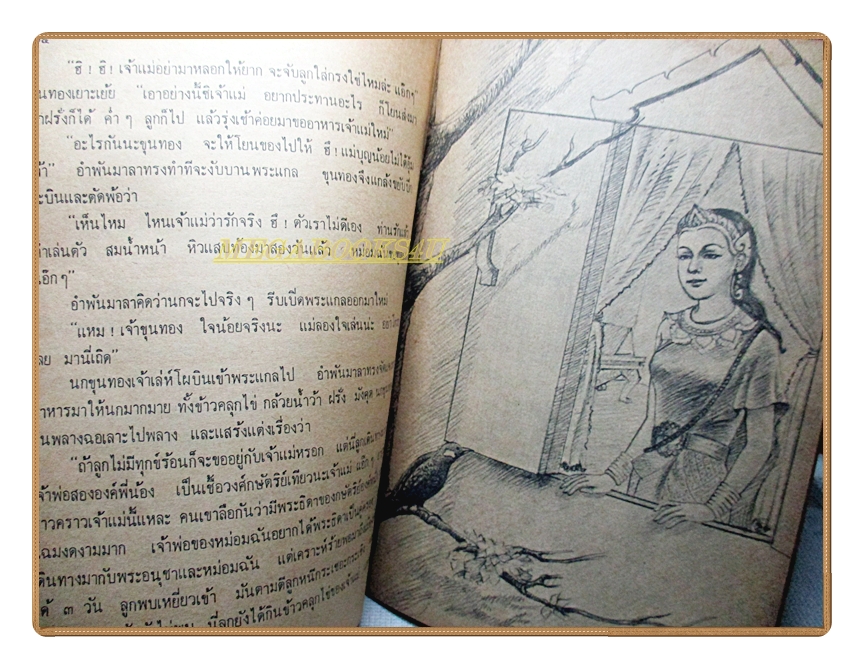 "ฮิ ! ฮิ ! เจ้าแม่อย่ามาหลอกให้ยาก จะจับลูกใส่กรงใช่ไหมล่ะ แอ๊กๆ"
นทองเยาะเย้ย "เอาอย่างนี้ซิเจ้าแม่ อยากประทานอะไร ก็โยนส่งมา
าฝรั่งก็ได้ ค่ำ ๆ ลูกก็ไป แล้วรุ่งเช้าค่อยมาขออาหารเจ้าแม่ใหม่"
"อะไรกันนะขุนทอง จะให้โยนของไปให้ ฮึ ! แม่บุญน้อยไม่ได้อุ้ม
อำพันมาลาทรงทำทีจะงับบานพระแกล ขุนทองจึงแกล้งขยับปีก
ะบินและตัดพ้อว่า
"เห็นไหม ไหนเจ้าแม่ว่ารักจริง ฮึ ! ตัวเราไม่ดีเอง ท่านรักแล้ว
เล่นตัว สมน้ำหน้า หิวแสบท้องมาสองวันแล้ว
อ๊กๆ"
MEGABOOKS4U
อำพันมาลาคิดว่านกจะไปจริง ๆ รีบเปิดพระแกลออกมาใหม่
"แหม ! เจ้าขุนทอง ใจน้อยจริงนะ แม่ลองใจเล่นน่ะ
ลย มานี่เถิด"
นกขุนทองเจ้าเล่ห์โผบินเข้าพระแกลไป อำพันมาลาทรง
าหารมาให้นกมากมาย ทั้งข้าวคลุกไข่ กล้วยน้ำว้า ฝรั่ง มังคุด
นพลางฉอเลาะไปพลาง และแสร้งแต่งเรื่องว่า
"ถ้าลูกไม่มีทุกข์ร้อนก็จะขออยู่กับเจ้าแม่หรอก แต่นี่ลูกเดินทาง
จ้าพ่อสององค์พี่น้อง เป็นเชื้อวงศ์กษัตริย์เทียวนะเจ้าแม่ แอ๊กๆ
าวคราวเจ้าแม่นี้แหละ คนเขาลือกันว่ามีพระธิดาของกษัตริย์
ฉมงดงามมาก เจ้าพ่อของหม่อมฉันอยากได้พระธิดาเป็น
ดินทางมากับพระอนุชาและหม่อมฉัน แต่เคราะห์ร้าย
ด้ ๓ วัน ลูกพบเหยี่ยวเข้า มันตามตีลูกหนีกระเซอะกระเซิง
นี่ลูกยังได้กินข้าวคลุกไข่ของเจ้าแม่